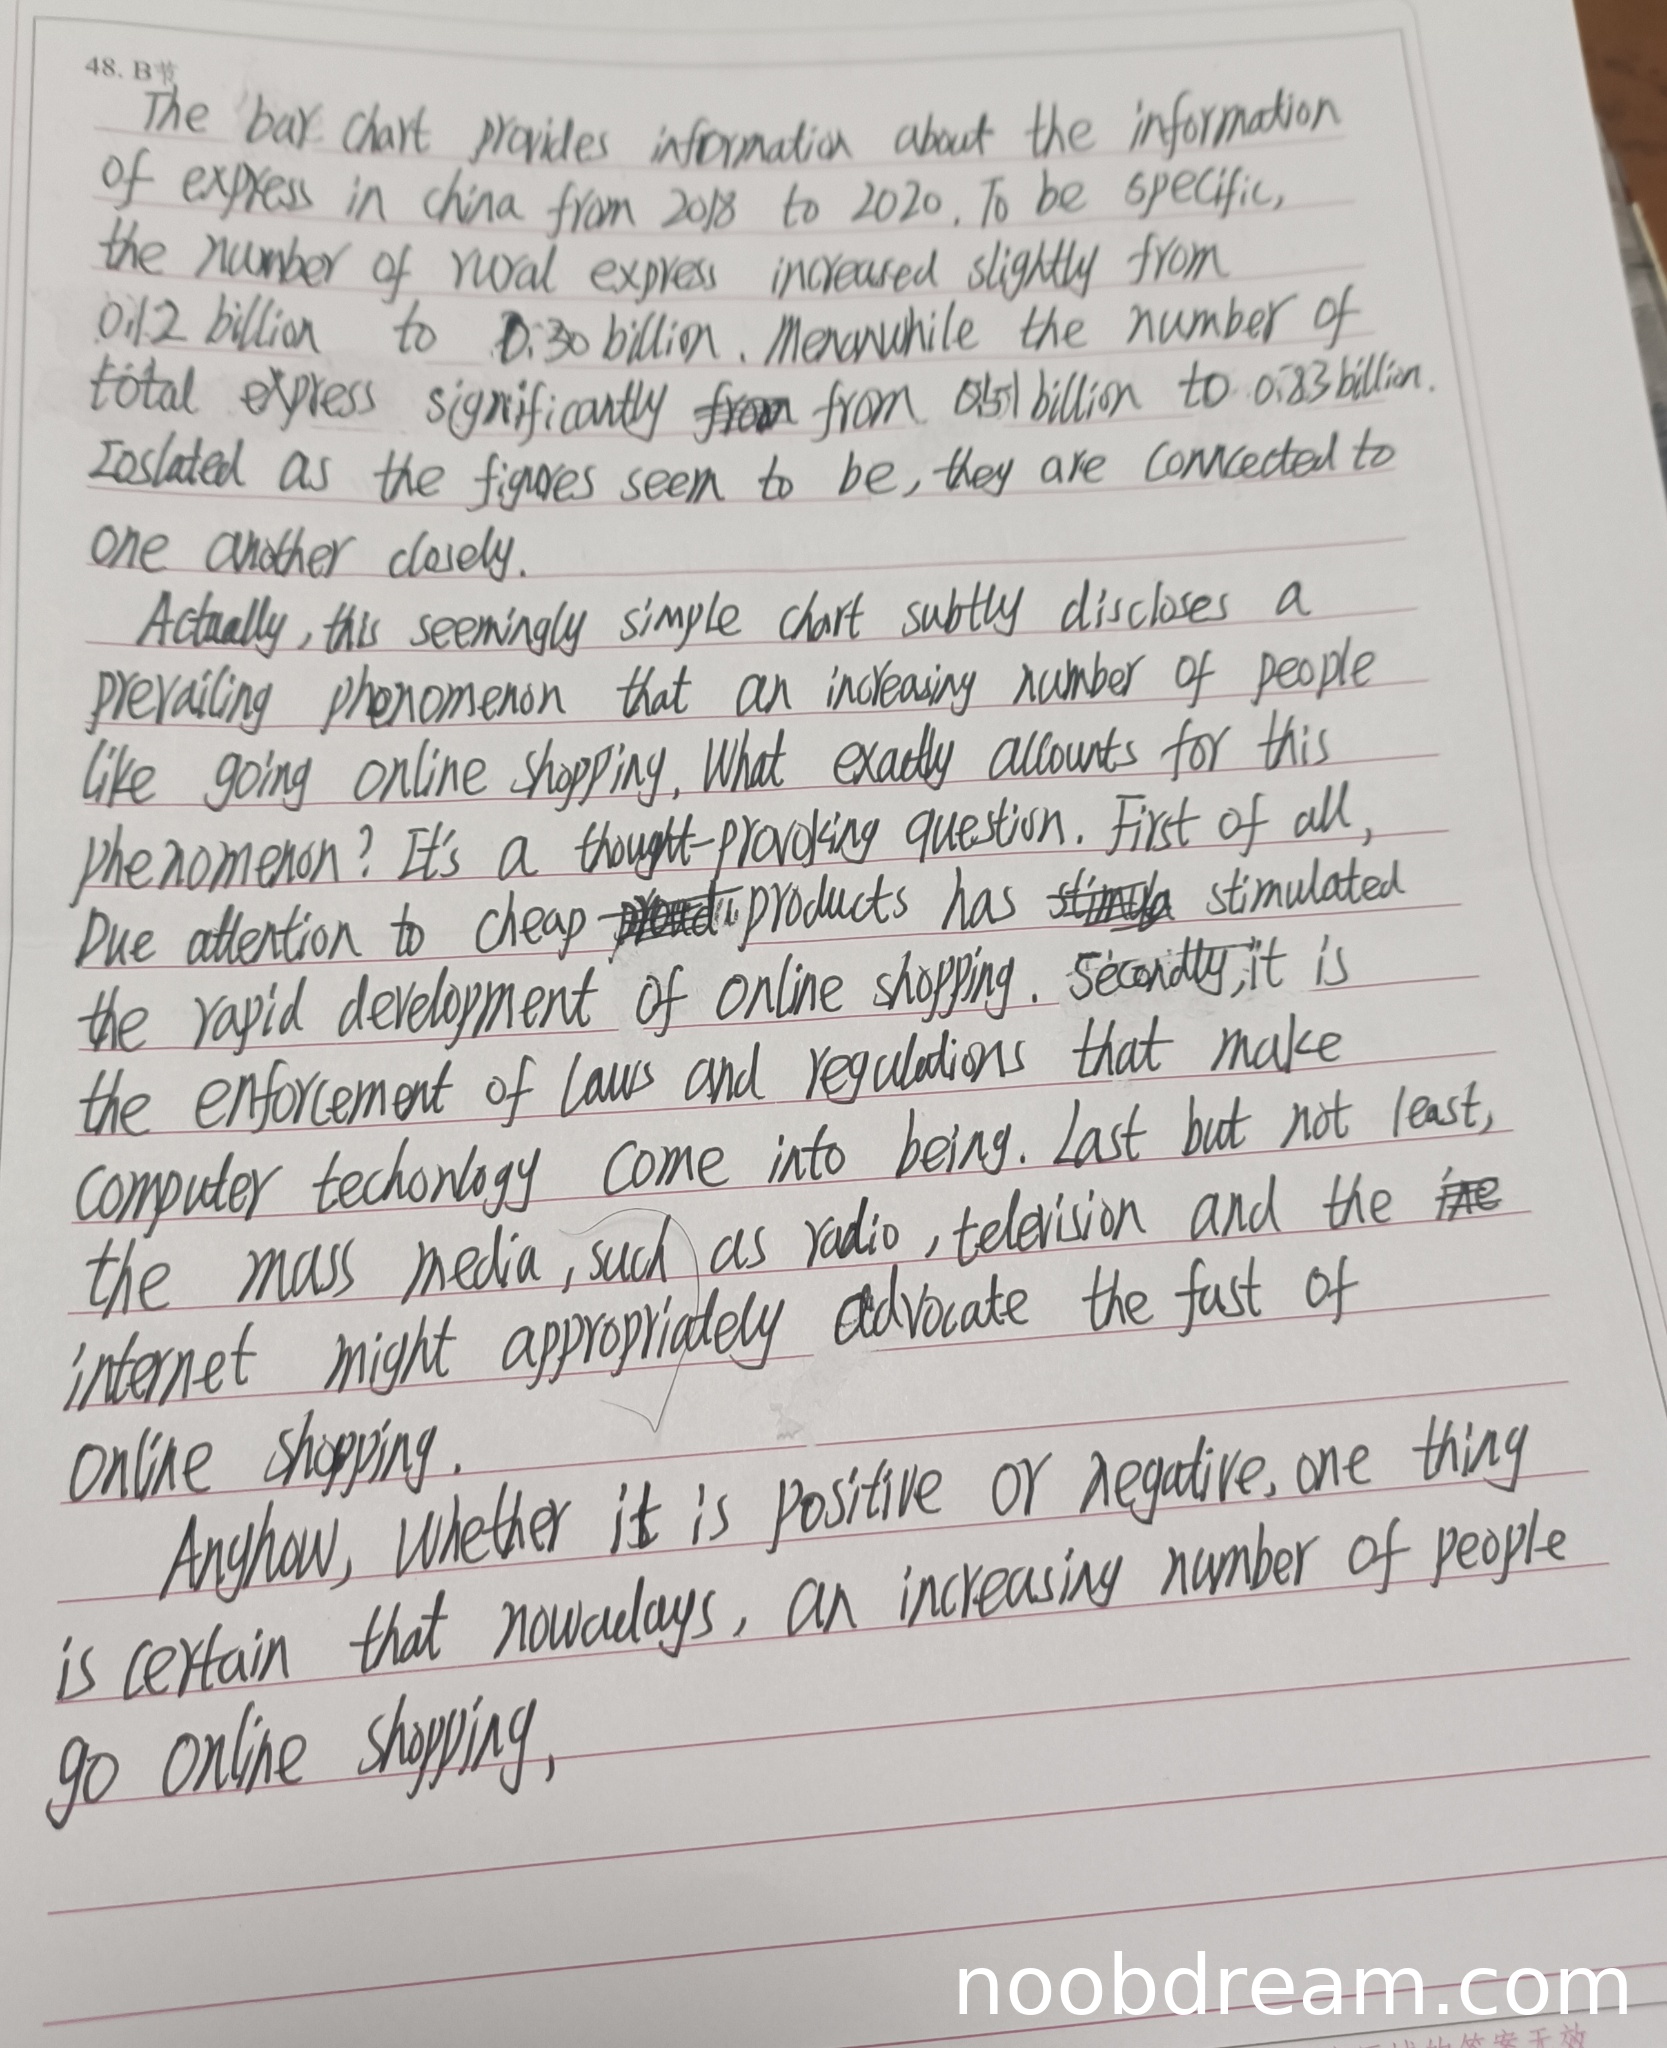 48. B节
The bar chart provides information about the information
of express in china from 2018 to 2020. To be specific,
the number of rural express increased slightly from
0.12 billion to 0.30 billion. Meranwhile the number of
total express significantly from 0.51 billion to 0.83 billion.
Ioslated as the figures seem to be, they are connected to
one another closely.
Actually, this seemingly simple chart subtly discloses a
prevailing phenomenon that an increasing number of people
like going online shopping. What exactly accounts for this
phenomenon? It's a thought-provoking question. First of all,
Due attention to cheap products has stimulated
the rapid development of online shopping. Secondly, it is
the enforcement of laws and regulations that make
computer techonlogy come into being. Last but not least,
the mass media, such as radio, television and the
internet might appropriately advocate the fast of
online shopping.
Anyhow, whether it is positive or negative, one thing
is certain that nowadays, an increasing number of people
go online shopping,
noobdream.com